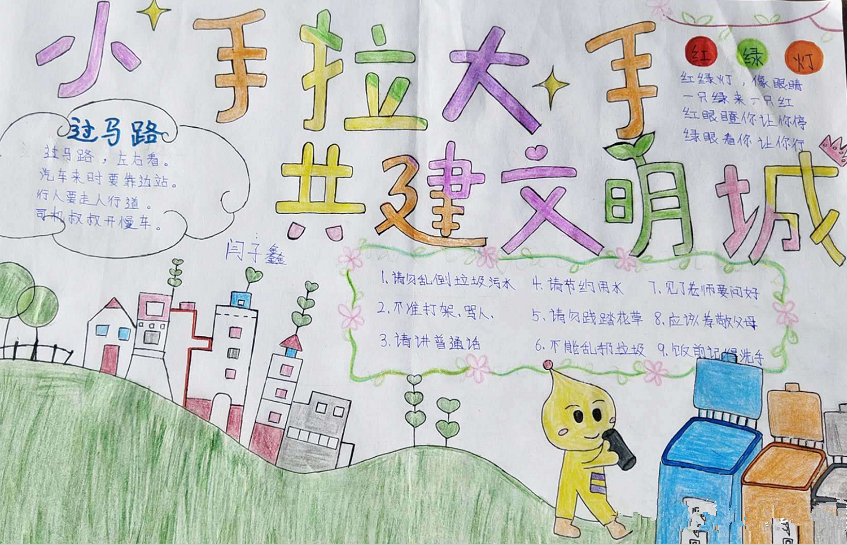 小手拉大手
共建文明城
红绿灯
红绿灯，像眼睛
一只绿来一只红
红眼瞪你让你停
绿眼看你让你行
过马路
过马路，左右看。
汽车来时要靠边站。
行人要走人行道。
司机叔叔开慢车。
闫子鑫
1.请勿乱倒垃圾污水
2.不准打架、骂人.
3.请讲普通话
4.请节约用水
5.请勿践踏花草
6.不能乱扔垃圾
7.见了老师要问好
8.应该孝敬父母
9.饭前记得洗手